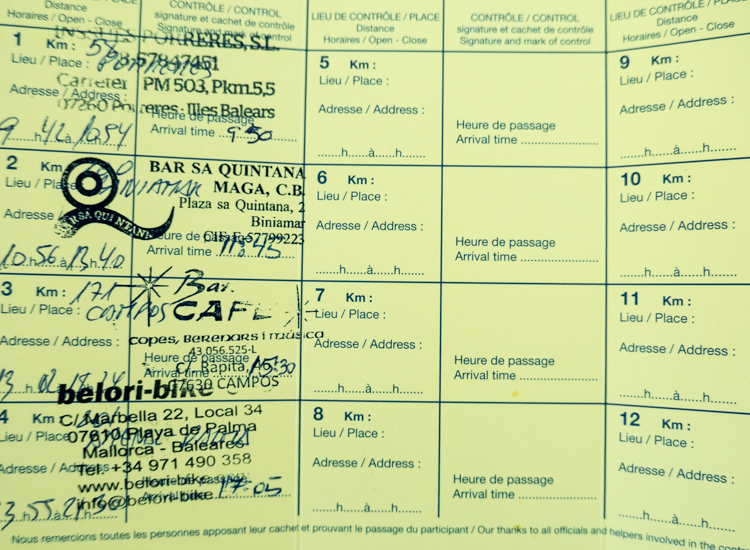 Distance
Horaires / Open - Close
CONTRÔLE / CONTROL
signature et cachet de contrôle
Signature and mark of control
LIEU DE CONTRÔLE / PLACE
Distance
Horaires / Open - Close
CONTRÔLE / CONTROL
signature et cachet de contrôle
Signature and mark of control
LIEU DE CONTRÔLE / PLACE
Distance
Horaires / Open - Close
1 Km :
Lieu / Place :
Adresse / Address :
9 h 42 à
PORRERES, S.L.
Carreter PM 503, Pkm.5,5
07260 Porreres - Illes Balears
Heure de passage
Arrival time 9'50
2 Km
Lieu / Place
BINIAMAR
Adresse
10.56 à 13 h 40
BAR SA QUINTANA
MAGA, C.B.
Plaza sa Quintana, 2
Biniamar
C.I.F. E-57799223
Heure de passage
Arrival time
BAR SA QUINTANA
3 Km : 171
Lieu / Place : CAMPOS
Adresse / Address :
Bar
CAFE
copes, berenars i música
43.056.525-L
C/. Rapita,
07630 CAMPOS
Heure de passage
Arrival time 15:30
4 Km :
Lieu / Place
Adresse / Address
belori-bike
C/ Marbella 22, Local 34
07610 Playa de Palma
Mallorca - Baleares
Tel. +34 971 490 358
www.belori-bike
info@belori-bike
17-05
5 Km :
Lieu / Place :
Adresse / Address :
......h.....à.....h......
Heure de passage
Arrival time
6 Km :
Lieu / Place :
Adresse / Address :
......h.....à.....h......
Heure de passage
Arrival time
7 Km :
Lieu / Place :
Adresse / Address :
......h.....à.....h......
Heure de passage
Arrival time
8 Km :
Lieu / Place :
Adresse / Address :
......h.....à.....h......
Heure de passage
Arrival time
9 Km :
Lieu / Place :
Adresse / Address :
......h.....à.....h......
10 Km :
Lieu / Place :
Adresse / Address :
......h.....à.....h......
11 Km :
Lieu / Place :
Adresse / Address :
......h.....à.....h......
12 Km :
Lieu / Place :
Adresse / Address :
......h.....à.....h......
Nous remercions toutes les personnes apposant leur cachet et prouvant le passage du participant / Our thanks to all officials and helpers involved in the